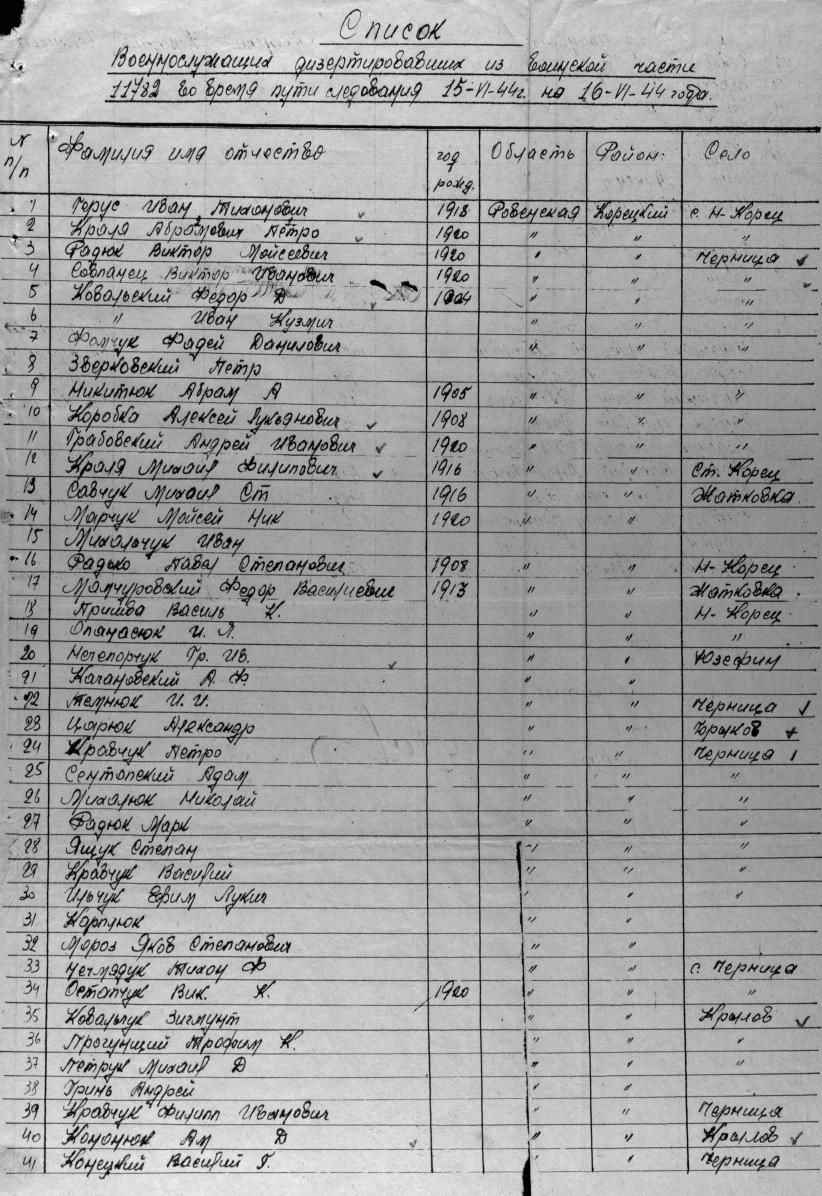 Список
Военнослужащих дизертировавших из воинской части
11782 во время пути следования 15-VI-44г. на 16-VI-44 года.
N п/п Фамилия имя отчество год рожд. Область Район: Село
1 Герус Иван Тихонович 1918 Ровенская Корецкий с. Н-Корец
2 Краля Абрамович Петро 1920 " " "
3 Радюк Виктор Мойсеевич 1920 " " Черница
4 Виктор Иванович 1920 " " "
5 Ковальский Федор Д " " "
6 " Иван Кузмич " " "
7 Фадей Данилович " " "
8 Зверковский Петр
9 Никитюк Абрам А 1905 " " "
10 Коробка Алексей Лукьянович 1908 " " "
11 Грабовский Андрей Иванович 1920 " " "
12 Краля Михаил Филипович 1916 " " Ст. Корец
13 Савчук Михаил Ст 1916 " " Жатковка
14 Марчук Мойсей Ник 1920 " "
15 Михальчук Иван
16 Радько Павел Степанович 1908 " " Н-Корец
17 Манчуровский Федор Василиевич 1913 " " Жатковка
18 Василь К. " " Н-Корец
19 Опанасюк И. Я. " " "
20 Нечепорчук Гр. Ив. " " Юзефин
21 Качановский А. Ф. " "
22 И. И. " " Черница
23 Царюк Александр " "
24 Кравчук Петро " " Черница
25 Адам " " "
26 Михалюк Николай " " "
27 Радюк Марк " " "
28 Ящук Степан " " "
29 Кравчук Василий " " "
30 Ильчук Ефим Лукич " " "
31 Карплюк " "
32 Мороз Яков Степанович " "
33 Тихон Ф " " с. Черница
34 Остапчук Вик. К. 1920 " " "
35 Ковальчук Зигмунт " " Крылов
36 Трофим К. " " "
37 Петрук Михаил Д " " "
38 Гринь Андрей " "
39 Кравчук Филипп Иванович " " Черница
40 Кононюк Ам Д " " Крылов
41 Конецкий Василий Г. " " Черница